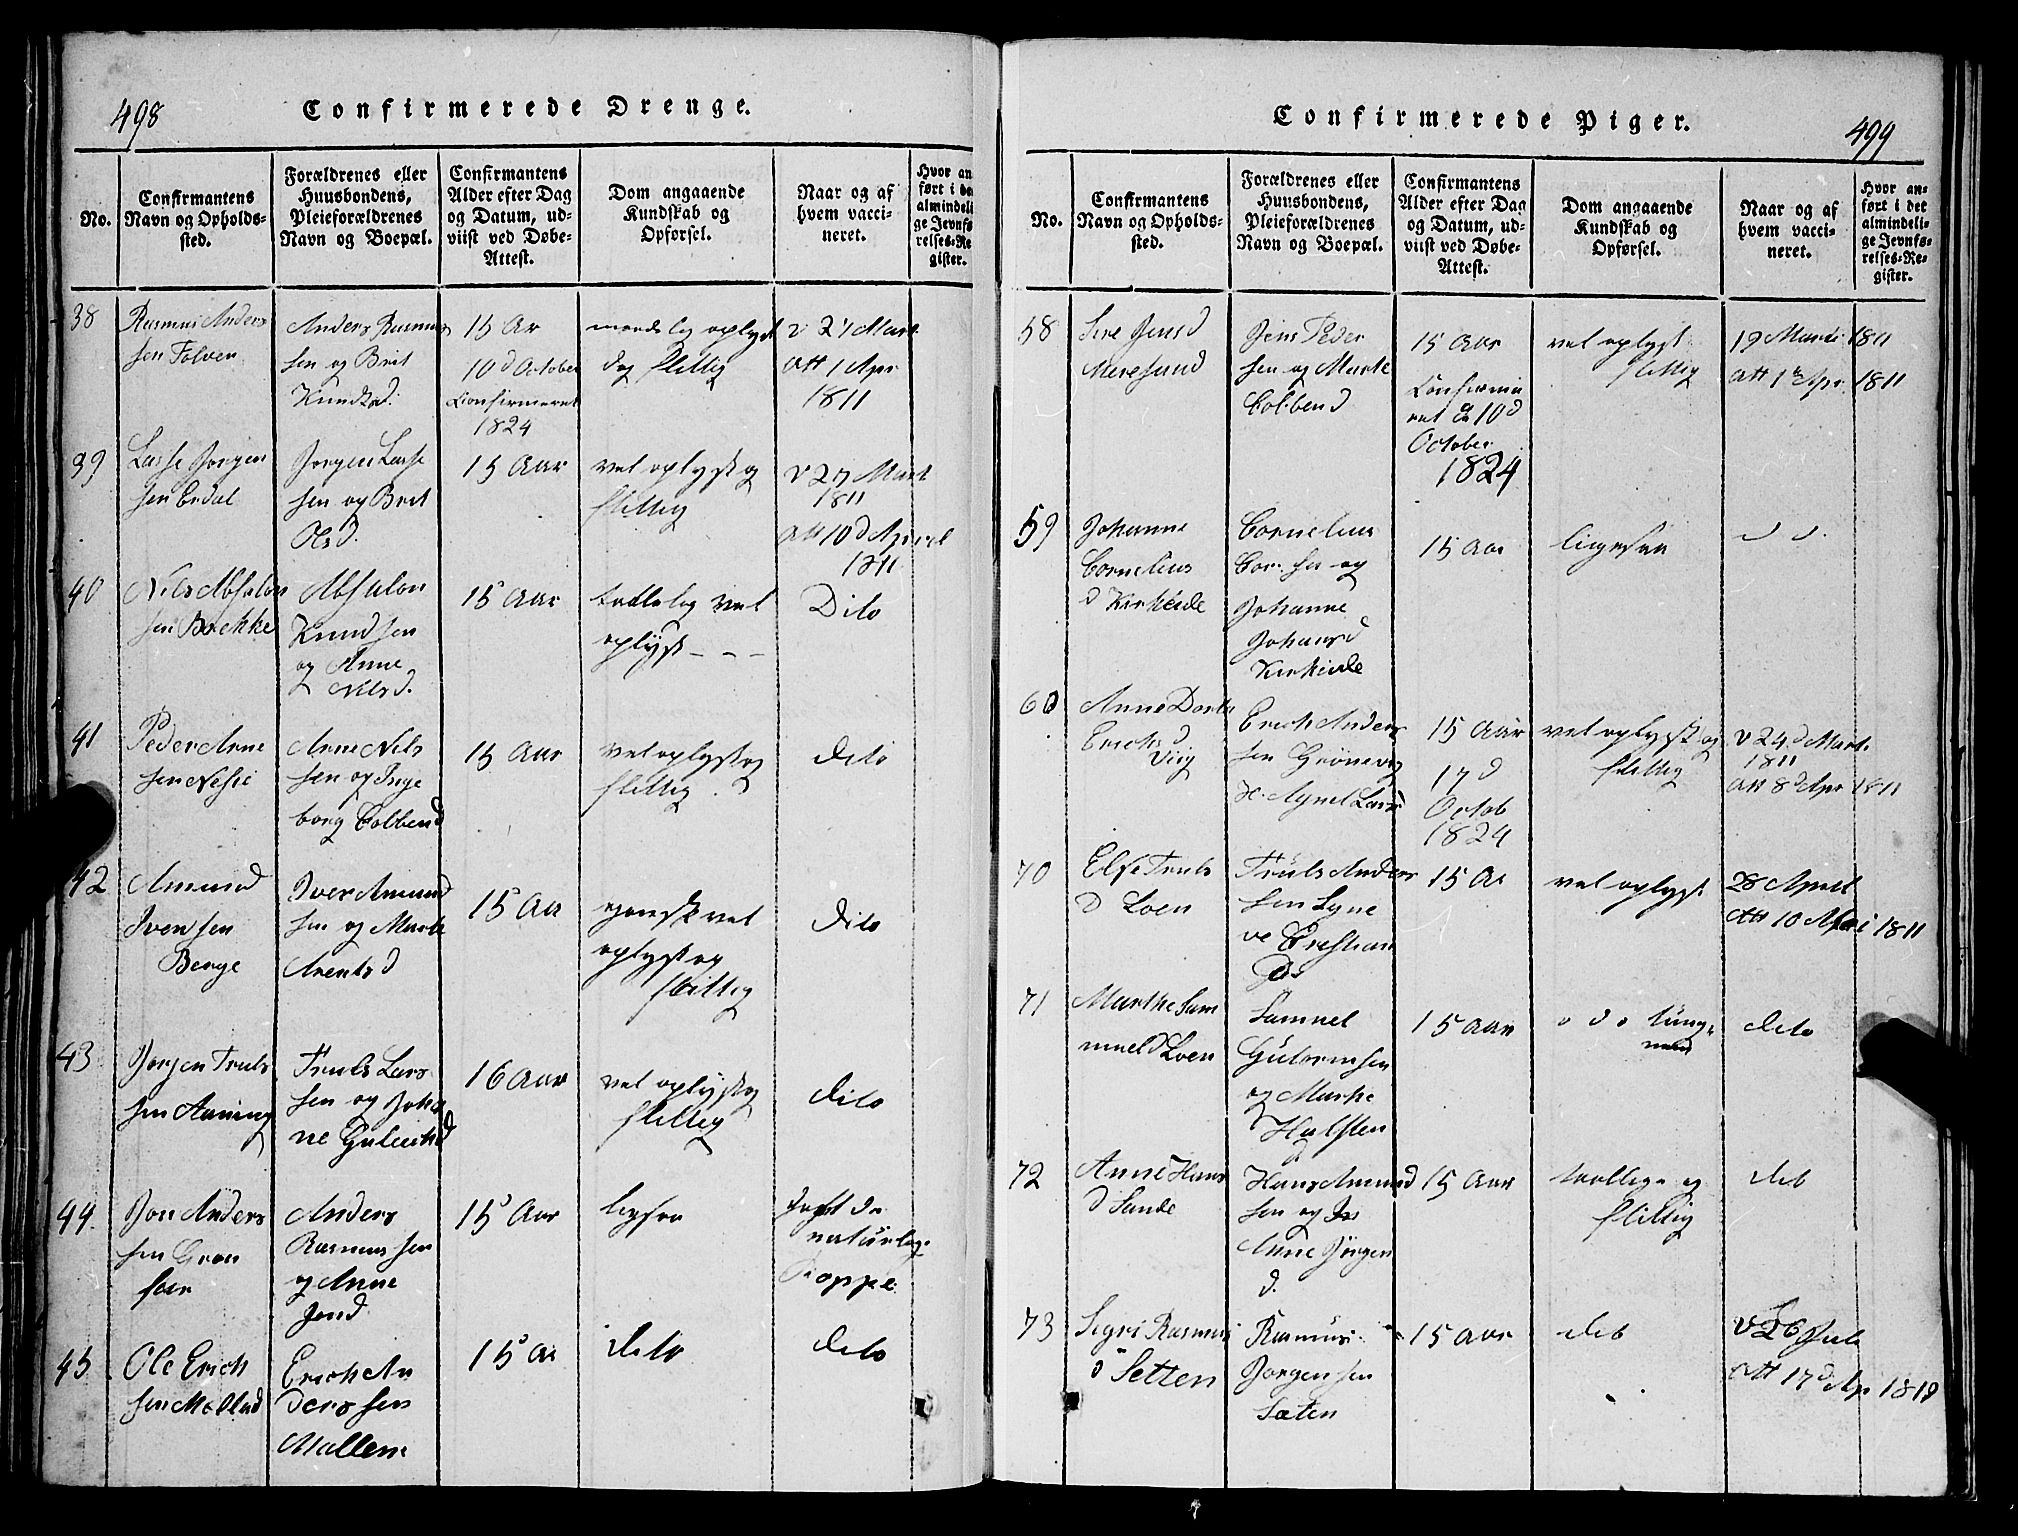 498
Confirmerede Drenge.
No.
Confirmantens
Navn og Opholds-
sted.
Forældrenes eller
Huusbondens,
Pleieforældrenes
Navn og Boepæl.
Confirmantens
Alder efter Dag
og Datum, ud-
viist ved Døbe-
Attest.
Dom angaaende
Kundskab og
Opførsel.
Naar og af
hvem vacci-
neret.
Hvor an
ført i de
almindeli
ge Jevnfø
relses-Re
gister.
38
Rasmus Anders
sen Folven
Anders Rasmus
sen og Brit
Knudsd.
15 Ar
10d October
Confirmeret
1824
oplyst
dog flittig
v 27 Mart
Att 1 Apr
1811
39
Lasse Jørgen
sen Erdal
Jørgen Lasse
sen og Brit
Olsd.
15 Aar
vel oplyst og
flittig
v 27 Mart
1811
Att 10d April
1811
40
Nils Absalon
sen Bække
Absalon
Knudsen
og Anne
Nilsd.
15 Aar
taalelig vel
oplyst - - -
Dito
41
Peder Arne
sen Nesse
Arne Nils
sen og Inge
borg Colbend
15 Aar
vel oplyst og
flittig . d
dito
42
Amund
Iversen
Berge
Iver Amund
sen og Marte
Arentsd
15 Aar
ganske vel
oplyst og
flittig
dito
43
Jørgen Truls
sen Auning
Truls Lars
sen og Joha
ne Guleichd
16 Aar
vel oplyst og
flittig
dito
44.
Jon Anders
sen Gran
foer
Anders
Rasmussen
og Anne
Jonsd.
15 Aar
ligesaa
haft de
naturlige
Kopper
45
Ole Erich
sen Mælled
Erich An
derssen
Mællem
15 Ar
dito
dito
Confirmerede Piger.
499
No.
Confirmantens
Navn og Opholds-
sted.
Forældrenes eller
Huusbondens,
Pleieforældrenes
Navn og Boepæl.
Confirmantens
Alder efter Dag
og Datum, ud-
viist ved Døbe-
Attest.
Dom angaaende
Kundskab og
Opførsel.
Naar og af
hvem vacci-
neret.
Hvor an-
ført i det
almindeli-
ge Jevnfø-
relses-Re-
gister.
58
Sire Jensd
Meresund
Jens Peder
sen og Marte
Colbend
15 Aar
Confirme
ret d 10d
October
1824
vel oplyst
flittig
19 Marts 1811
Att 1 Apr. 1811
59
Johanne
Cornelius
d Kirkeide
Cornelius
Cor. sen og
Johanne
Johansd
Kirkeide
15 Aar
ligesaa
d d.
60
Anne Dorte
Erichsd
Viig
Erich Anders
sen Grönevig
og Agnet Larsd
15 Aar
17d
Octob
1824
vel oplyst og
flittig
v 24d Mart.
1811
Att 8d Apr 1811
70
Else Truls
d Loen
Truls Anders
sen Lyne
ve Crestian
Ds
15 Ar
vel oplyst
28 April
Att 10 Mai 1811
71
Marthe Sam
mueld Loen
Samuel
Guttormsen
og Marthe
Halsten
d
15 Aar
d d d
dito
72
Anne Hans
d Sande
Hans Amund
sen og
Anne Jörgen
d.
15 Aar
taallig og
flittig
dito
73
Segri Rasmus
d Setten
Rasmus
Jørgensen
Sæten
15 Aar
dito
v 26 Juli
Att 17d Apr 1818